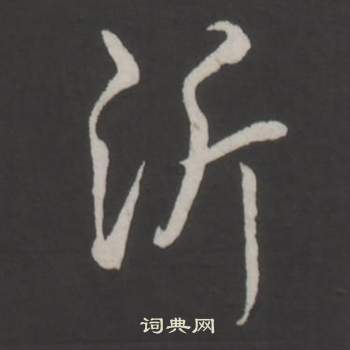 沂
词典网